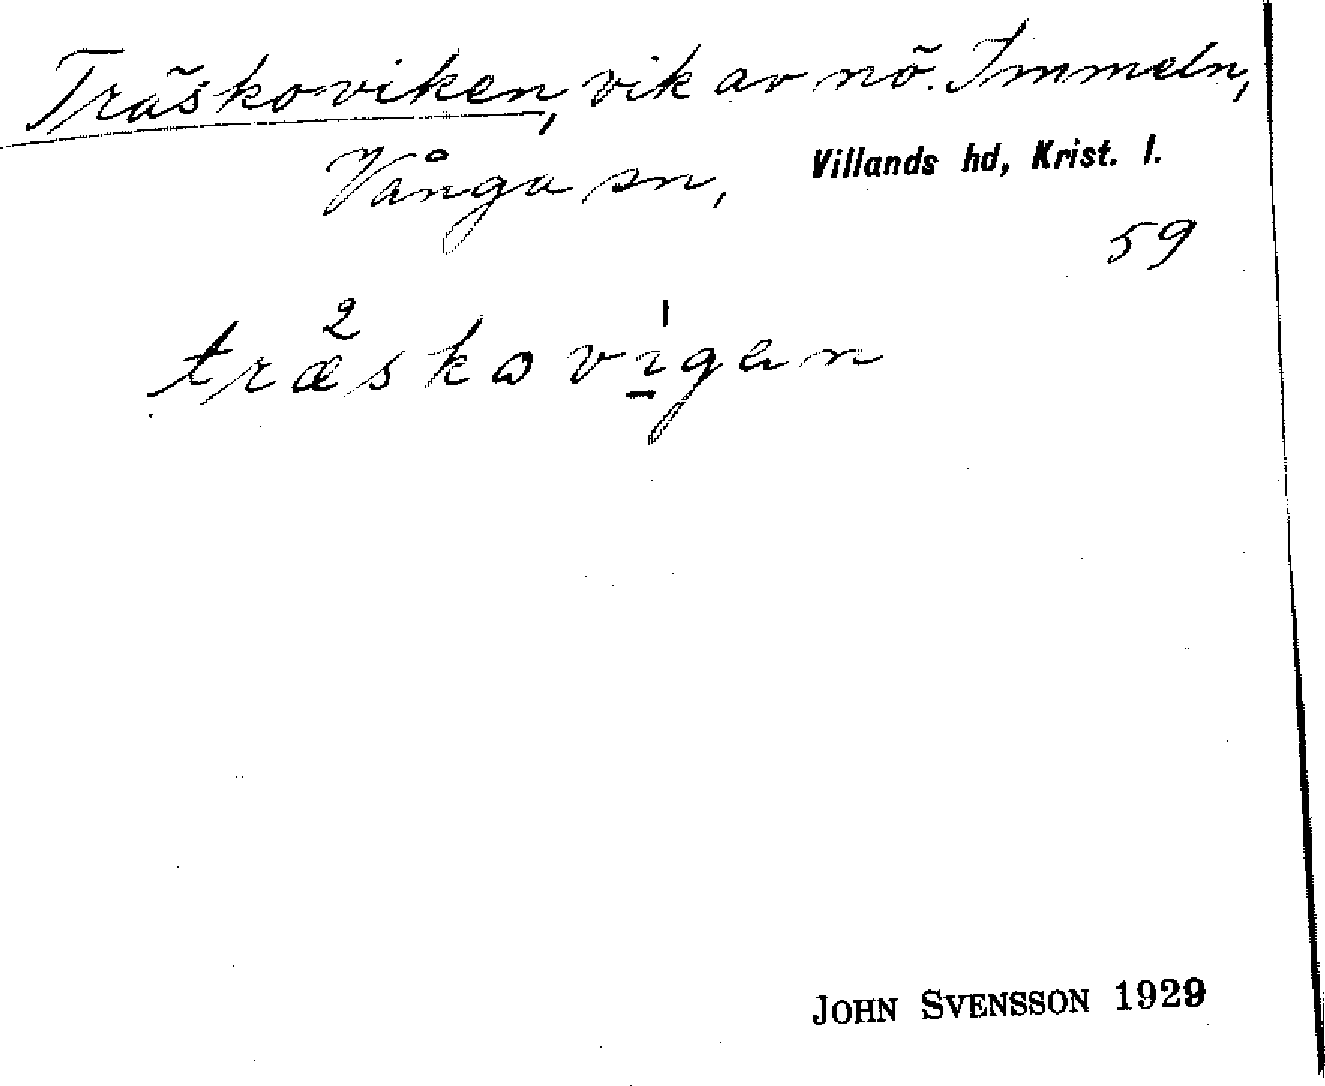 Träskoviken, vik av nö. Immeln,
Vånga sn, Villands hd, Krist. l.
59
træskovigen
JOHN SVENSSON 1929